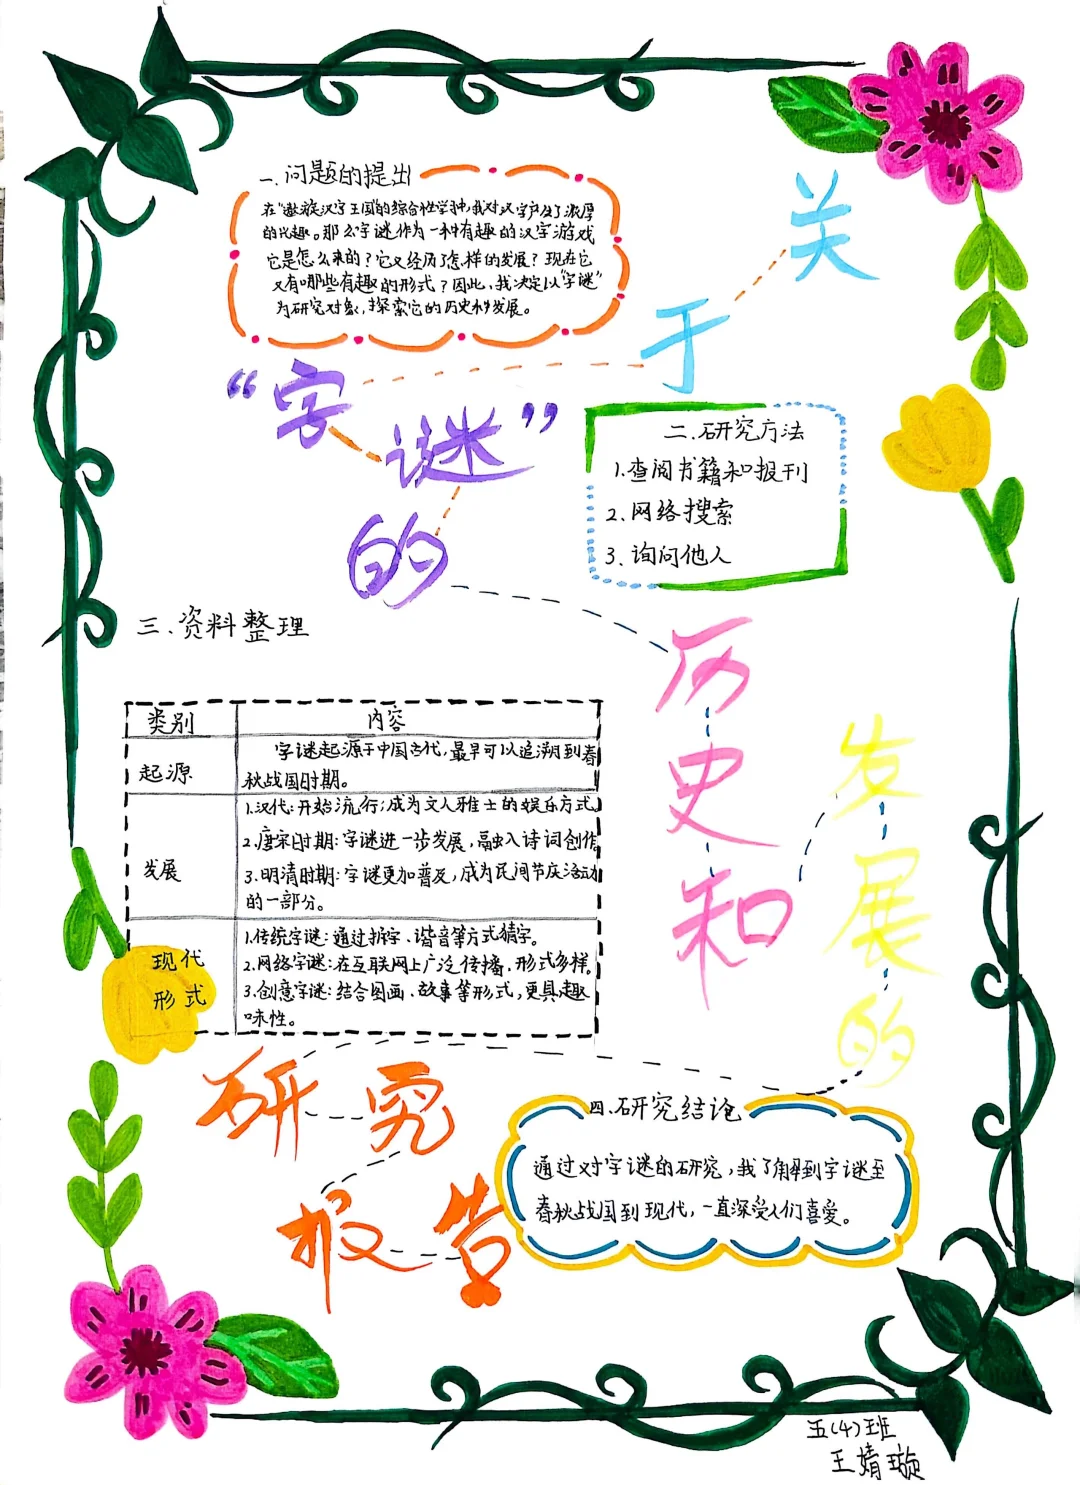 关
于
“字
谜”
的
历
史
和
发
展
的
研究
报告
一.问题的提出
在“遨游汉字王国”的综合性学习中,我对汉字产生了浓厚
的兴趣。那么字谜作为一种有趣的汉字游戏
它是怎么来的?它又经历了怎样的发展?现在它
又有哪些有趣的形式?因此,我决定以“字谜”
为研究对象,探索它的历史和发展。
二.研究方法
1.查阅书籍和报刊
2.网络搜索
3.询问他人
三.资料整理
类别 内容
起源 字谜起源于中国古代,最早可以追溯到春
秋战国时期。
发展 1.汉代:开始流行,成为文人雅士的娱乐方式
2.唐宋时期:字谜进一步发展,融入诗词创作
3.明清时期:字谜更加普及,成为民间节庆活动
的一部分。
现代
形式 1.传统字谜:通过拆字、谐音等方式猜字。
2.网络字谜:在互联网上广泛传播,形式多样。
3.创意字谜:结合图画、故事等形式,更具趣
味性。
四.研究结论
通过对字谜的研究,我了解到字谜至
春秋战国到现代,一直深受人们喜爱。
五(4)班
王婧璇